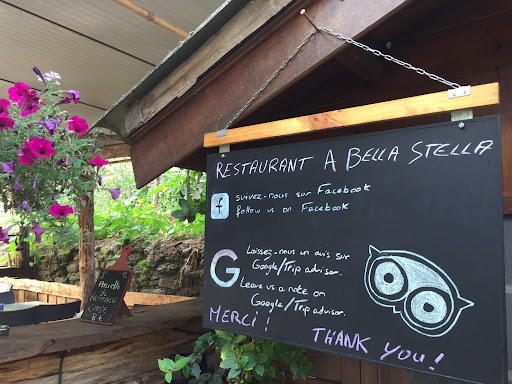 RESTAURANT A BELLA STELLA
f
suivez-nous sur Facebook
follow us on Facebook
G
Laissez-nous un avis sur
Google/Trip advisor.
Leave us a note on
Google/Trip advisor.
MERCI!
THANK YOU!
DE FROMAGE
CORSE
8 €